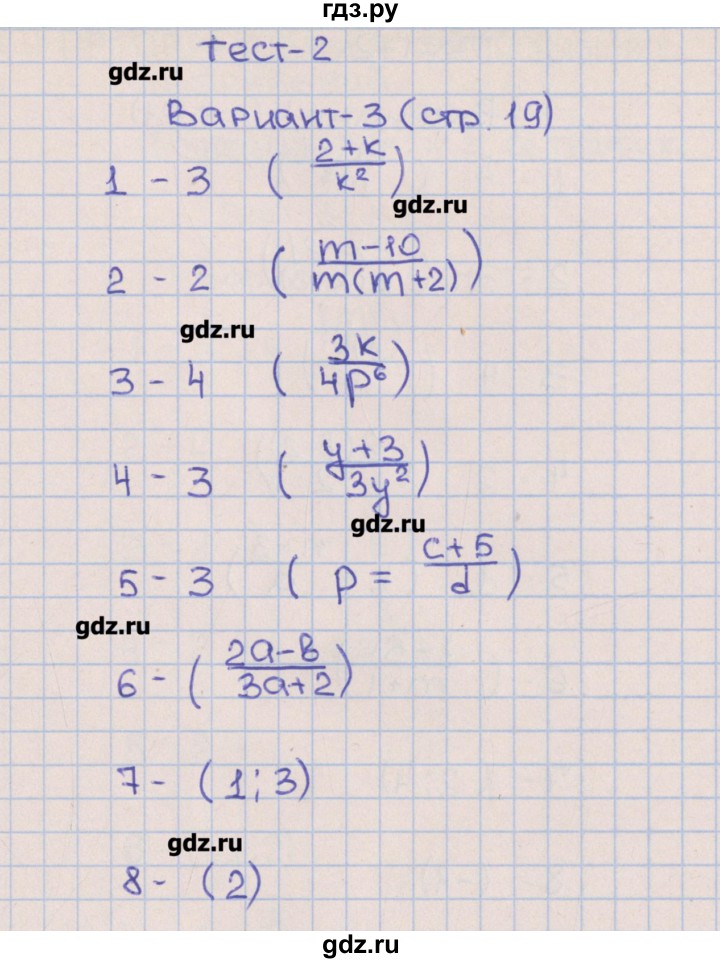 гдз.ру
тест-2
gdz.ru
Вариант-3 (стр. 19)
1 - 3 ( (2+k)/k² )
gdz.ru
2 - 2 ( (m-10)/(m(m+2)) )
gdz.ru
3 - 4 ( 3k/4p⁶ )
4 - 3 ( (y+3)/3y² )
gdz.ru
5 - 3 ( p = (c+5)/d )
gdz.ru
6 - ( (2a-b)/(3a+2) )
7 - (1; 3)
gdz.ru
8 - (2)
gdz.ru